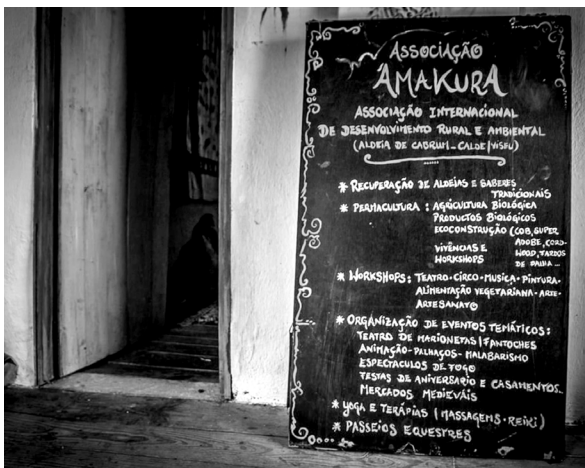 ASSOCIAÇÃO
AMAKURA
ASSOCIAÇÃO INTERNACIONAL
DE DESENVOLVIMENTO RURAL E AMBIENTAL
(ALDEIA DE CABRUM_CALDE|VISEU)
* RECUPERAÇÃO DE ALDEIAS E SABERES
TRADICIONAIS
* PERMACULTURA : AGRICULTURA BIOLÓGICA
PRODUTOS BIOLÓGICOS
ECOCONSTRUÇÃO (COB, SUPER
ADOBE, CORD-
VIVÊNCIAS E WOOD, FARDOS
WORKSHOPS DE PALHA...
* WORKSHOPS: TEATRO-CIRCO-MUSICA-PINTURA-
ALIMENTAÇÃO VEGETARIANA-ARTE-
ARTESANATO
* ORGANIZAÇÃO DE EVENTOS TEMÁTICOS:
TEATRO DE MARIONETAS|FANTOCHES
ANIMAÇÃO-PALHAÇOS-MALABARISMO
ESPECTACULOS DE FOGO
FESTAS DE ANIVERSARIO E CASAMENTOS...
MERCADOS MEDIEVÁIS
* YOGA E TERÁPIAS (MASSAGENS-REIKI)
* PASSEIOS EQUESTRES